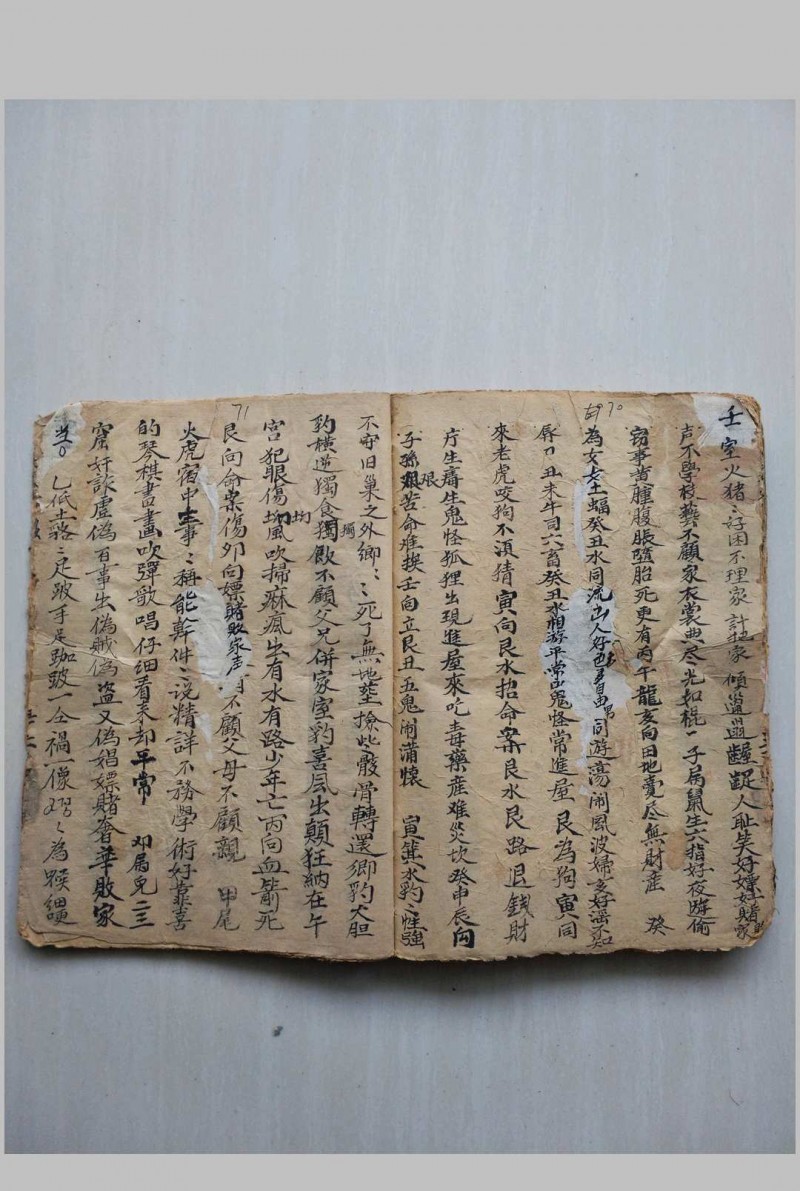 壬室火猪〻好困不理家 計拙家傾邋遢齷齪人耻笑好嫖好賭家
声不學校藝不顧家衣裳典尽光如棍一子局鼠生六指好夜遊偷
窃事黄腫腹脹墮胎死更有丙午龍亥向田地賣尽無財産 癸
70
為女土蝠癸丑水同流出人好色自由男同遊蕩鬧風波婦女好淫不知
辱刀丑未牛司六畜癸丑水相游平常出鬼怪常進屋 艮為狗寅同
來老虎咬狗不須猜寅向艮水招命案艮水艮路退錢財
疔生瘡生鬼怪狐狸出現進屋來吃毒藥産难災坎癸申辰向
子孫艰苦命难挨壬向立艮丑五鬼鬧满懷 寅箕水豹〻性強
不守旧巢之外鄉〻〻死了無地塟撿些骸骨轉還鄉豹大胆
豹横逆獨食獨飲不顧父兄併家室豹喜風出顛狂納在午
宫犯眼傷坳風吹掃痳瘋出有水有路少年亡丙向血箭死
71
艮向命案傷卯向嫖賭敗家声不顧父母不顧親 甲尾
火虎宿中主事〻稱能幹件〻說精詳不務學術好靠喜
的琴棋書畫吹彈歌唱仔細看来却平常 卯局兔二三
窟奸詐虚偽百事出偽賊偽盗又偽娼嫖賭奢華敗家
当。 乙低土貉〻足跛手足跏跛一全禍一像為猴細